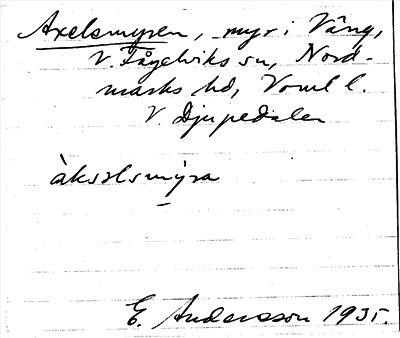 Axelsmyren, myr i Vång,
V. Fågelviks sn, Nord-
marks hd, Vrml l.
V. Djupedalen
àksəlsmýra
E. Andersson 1935.